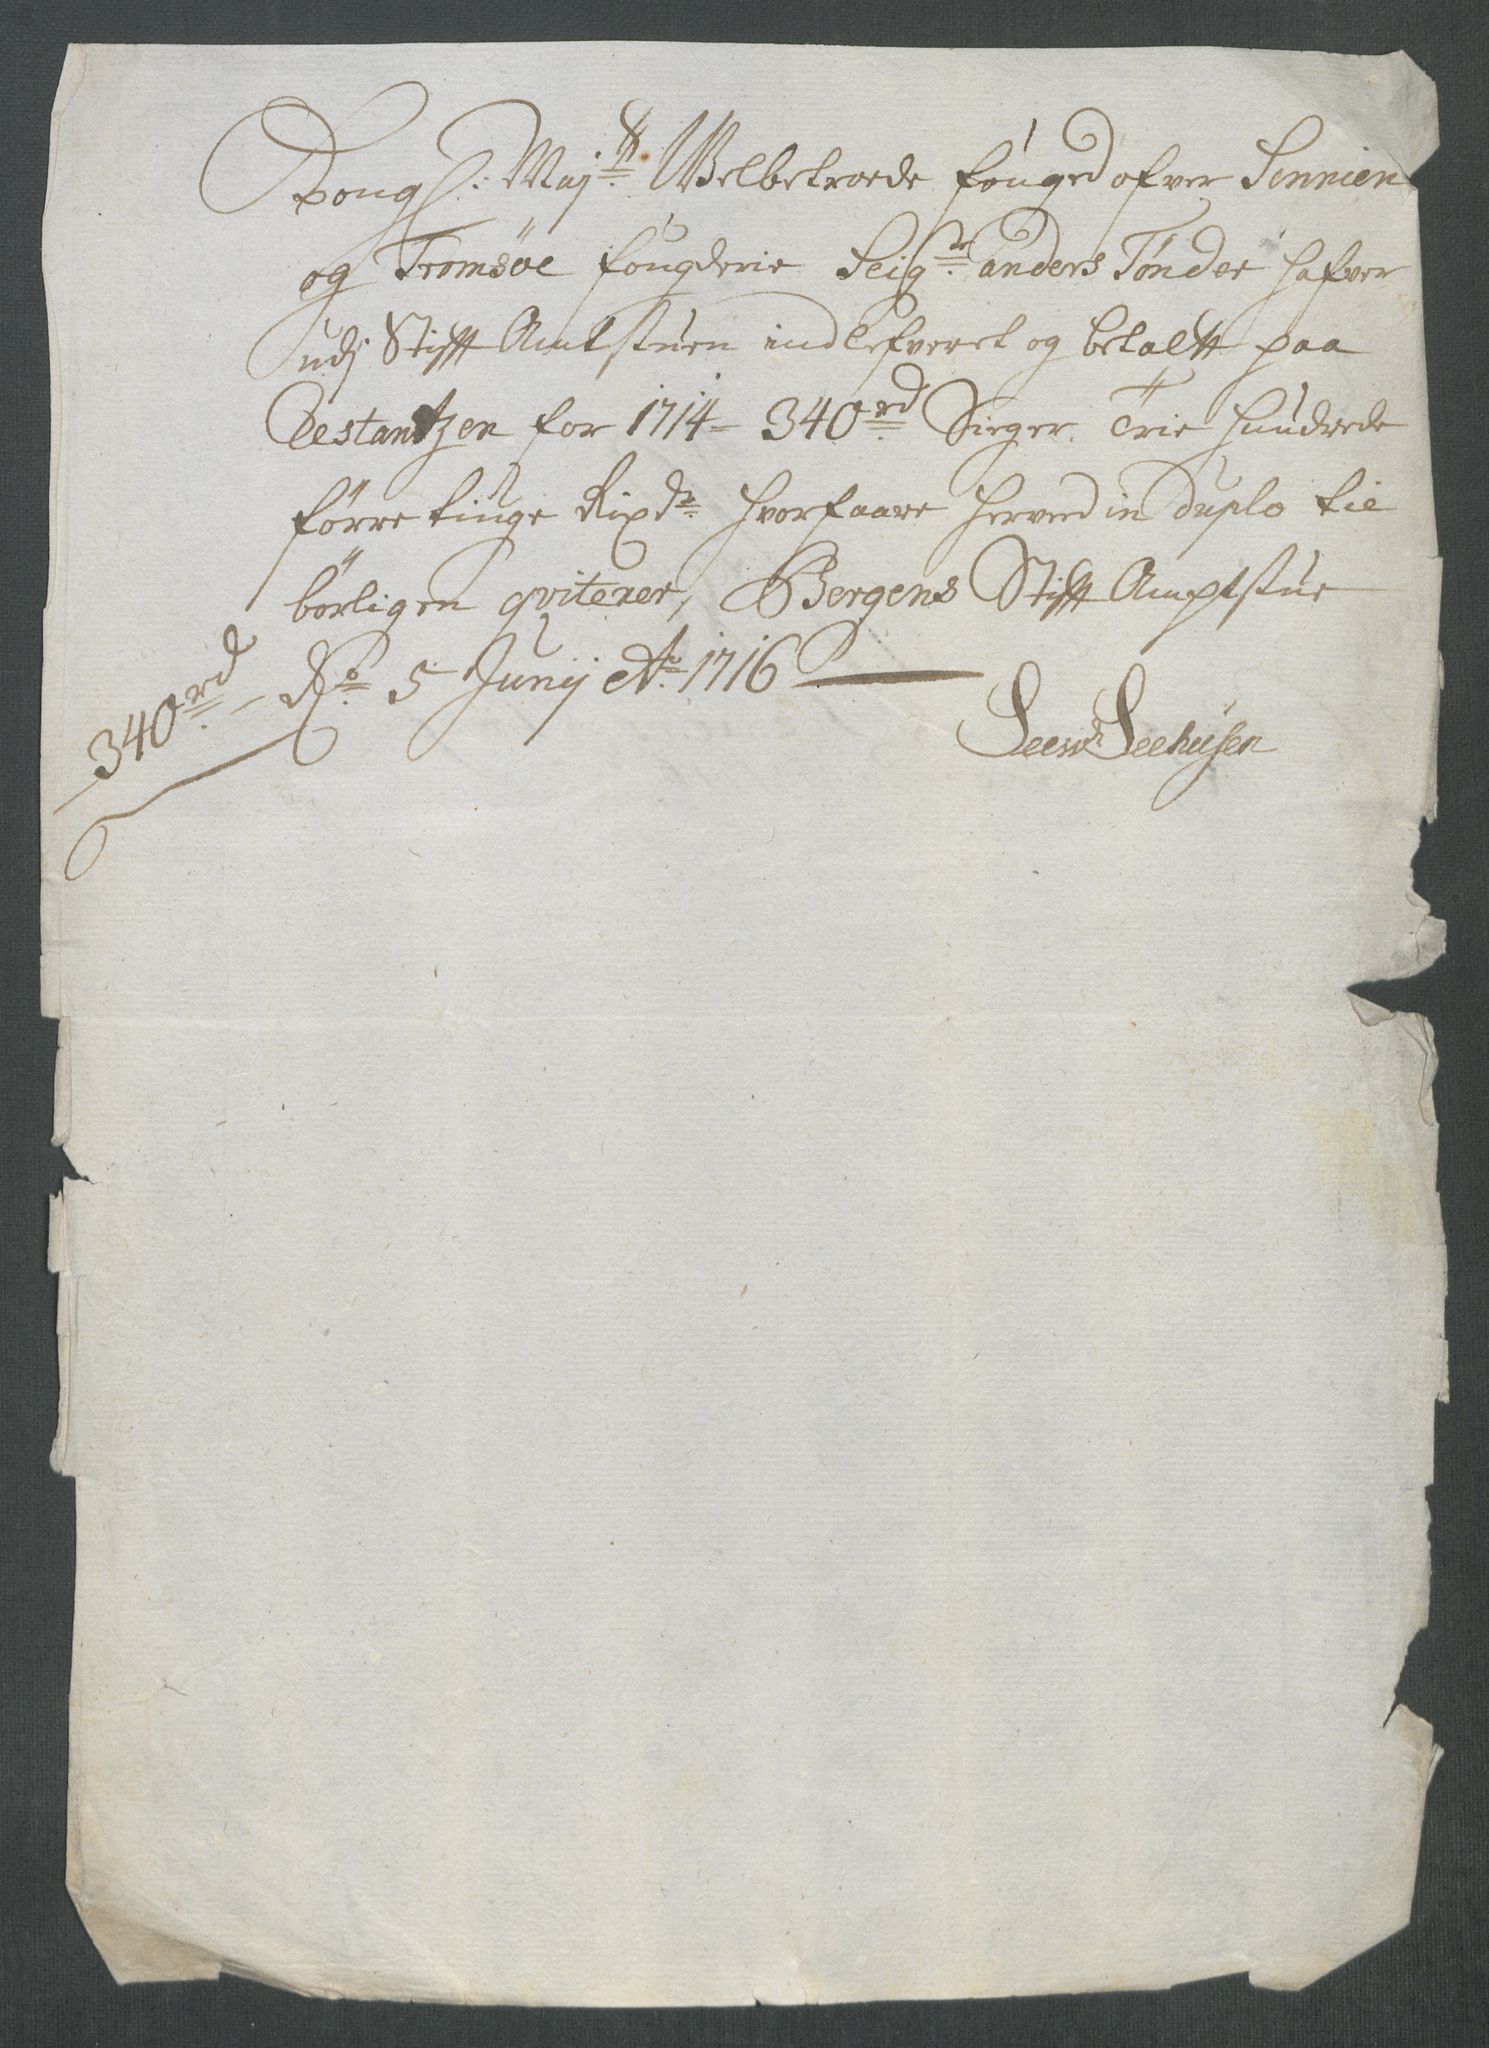 Kongl: Maj:tz Welbetroede fouged ofver Sennien
og Tromsöe fougderie Seigr: anders Tönder hafver
udj Stifft Amtstuen indlefveret og betaltt paa
Restantzen for 1714 - 340rd Siger Trie hundrede
förretiuge Rixdr hvorfaare herved in duplo til
börligen qviterer, Bergens Stifft Amptstue
Do 5 Junij Ao 1716
340rd
Seehusen